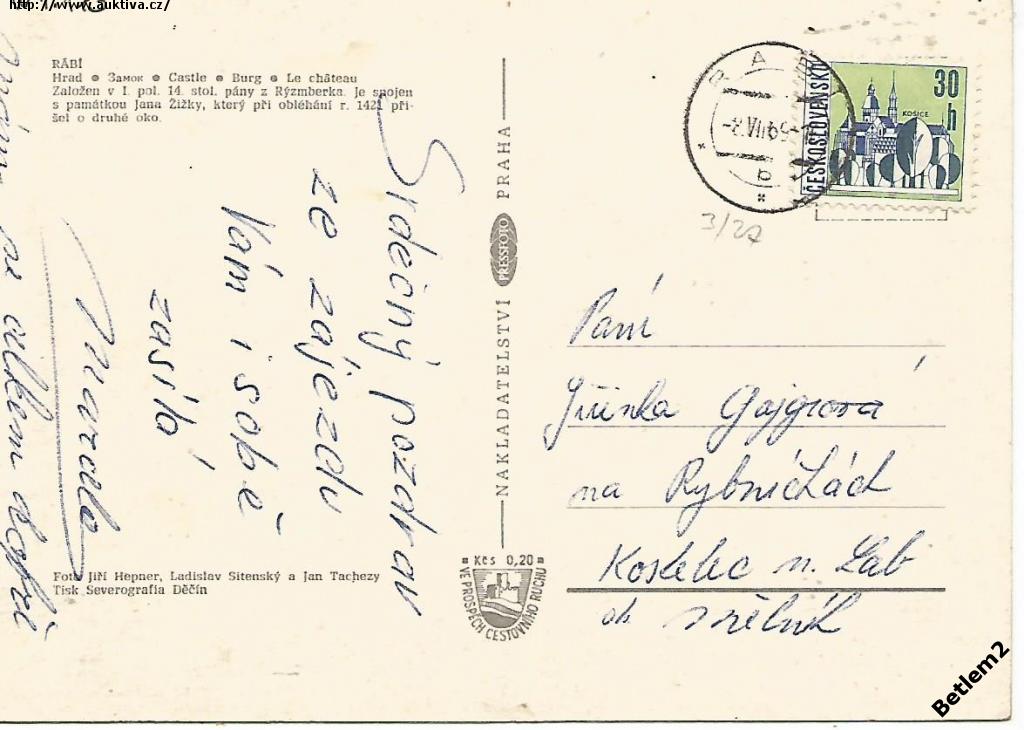 http://www.auktiva.cz/
RÁBÍ
Hrad • Замок • Castle • Burg • Le château
Založen v I. pol. 14. stol. pány z Rýzmberka. Je spojen
s památkou Jana Žižky, který při obléhání r. 1421 při-
šel o druhé oko.
Srdečný pozdrav
ze zajezdu
Vám i sobě
zasílá
se velkem dobře
Foto Jiří Hepner, Ladislav Sitenský a Jan Tachezy
Tisk Severografia Děčín
NAKLADATELSTVÍ PRESSFOTO PRAHA
Kčs 0,20
VE PROSPĚCH CESTOVNÍHO RUCHU
RABÍ
a
ČESKOSLOVENSKO
30
h
KOŠICE
3/27
Paní
Jiřinka Gajgrová
na Rybníčkách
Kostelec n. Lab
ok. Mělník
Betlem2